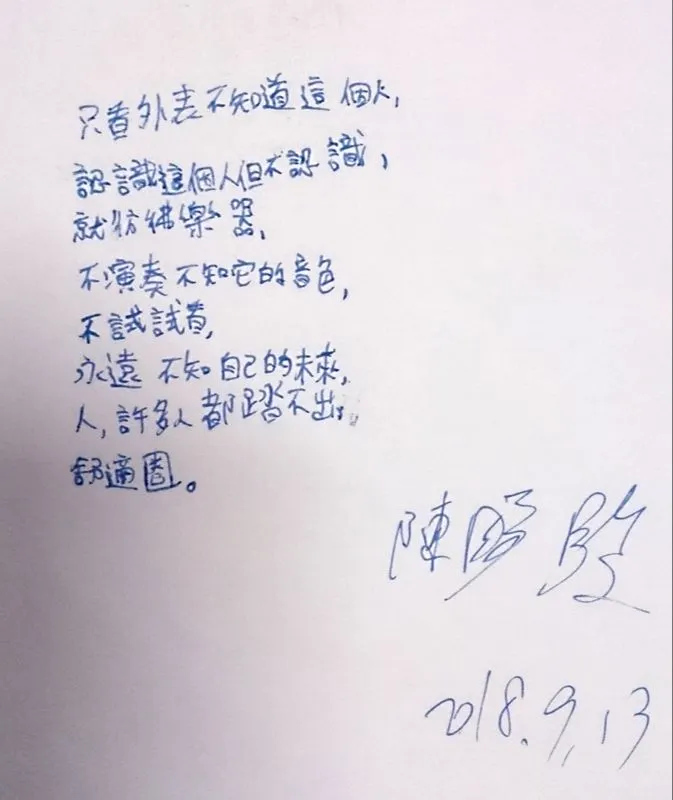 只看外表不知道這個人,
認識這個人但不認識,
就彷彿樂器,
不演奏不知它的音色,
不試試看,
永遠不知自己的未來,
人,許多人都踏不出
舒適圈。
陳
2018.9.13